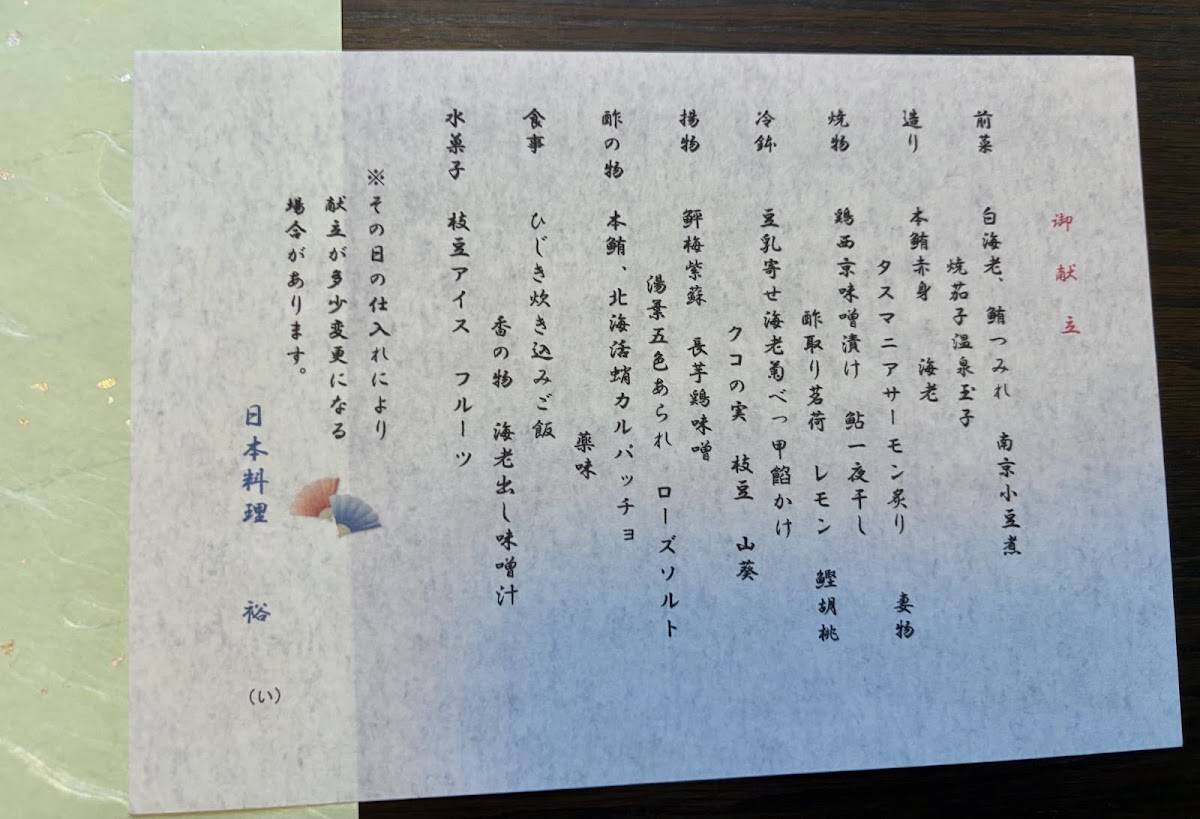 御献立
前菜 白海老、鮪つみれ 南京小豆煮
焼茄子温泉玉子
造り 本鮪赤身 海老
タスマニアサーモン炙り 妻物
焼物 鶏西京味噌漬け 鮎一夜干し
酢取り茗荷 レモン 鰹胡桃
冷鉢 豆乳寄せ海老菊べっ甲餡かけ
クコの実 枝豆 山葵
揚物 鮃梅紫蘇 長芋鶏味噌
湯葉五色あられ ローズソルト
酢の物 本鮪、北海活蛸カルパッチョ
薬味
食事 ひじき炊き込みご飯
香の物 海老出し味噌汁
水菓子 枝豆アイス フルーツ
※その日の仕入れにより
献立が多少変更になる
場合があります。
日本料理 裕
(い)